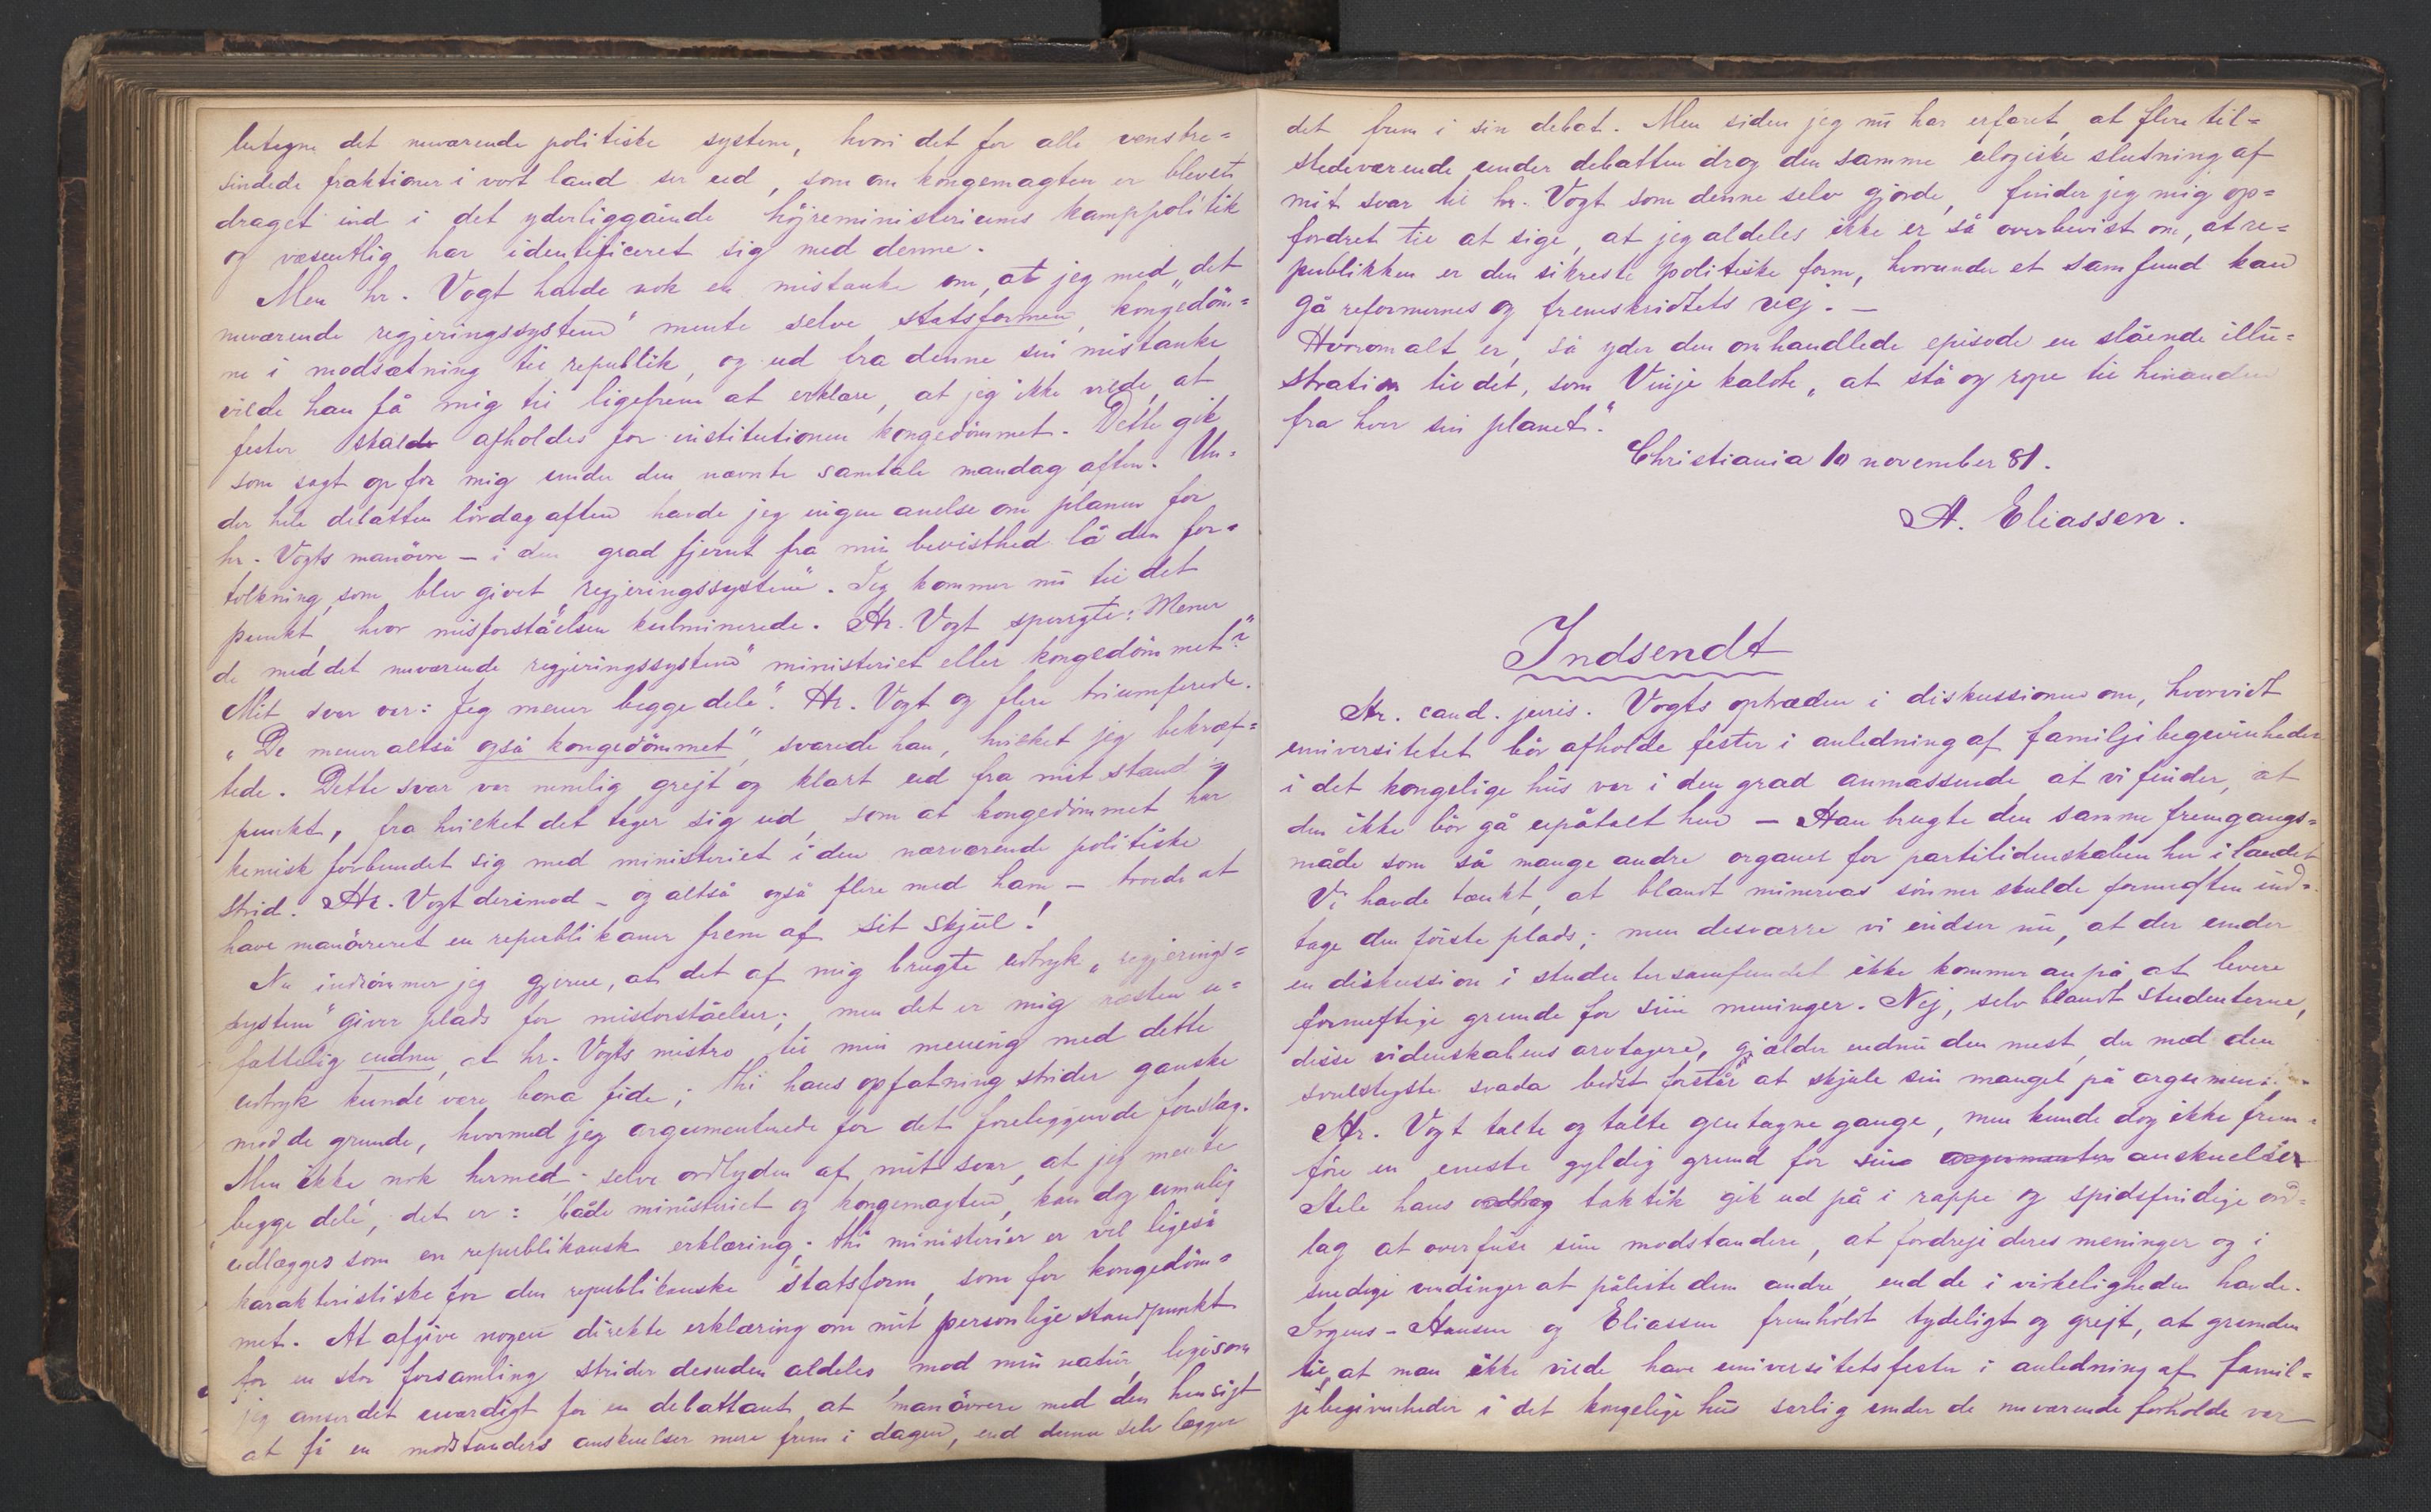 betegne det nuværende politiske system, hvori det for alle venstre=
sindede fraktioner i vort land ser ud, som om kongemagten er blevet
draget ind i det yderliggående højreministeriums kamppolitik
og væsentlig har identificeret sig med denne.
Men hr. Vogt havde nok en mistanke om, at jeg med „det
nuværende regjeringssystem" mente selve statsformen, kongedöm=
me i modsætning til republik, og ud fra denne sin mistanke
vilde han få mig til ligefrem at erklære, at jeg ikke vilde, at
fester skal afholdes for institutionen kongedömmet. Dette gik
som sagt op for mig under den nævnte samtale mandag aften. Un=
der hele debatten lördag aften havde jeg ingen anelse om planen for
hr. Vogts manövre – i den grad fjernt fra min bevisthed lå den for=
tolkning, som blev givet „regjeringssystem". Jeg kommer nu til det
punkt, hvor misforståelsen kulminerede. Hr. Vogt spurgte: Mener
de med „det nuværende regjeringssystem" ministeriet eller kongedömmet"?
Mit svar var: Jeg mener begge dele". Hr. Vogt og flere triumferede.
„De mener altså også kongedömmet," svarede han, hvilket jeg bekræf=
tede. Dette svar var nemlig grejt og klart ud fra mit stand=
punkt, fra hvilket det tager sig ud, som at kongedömmet har
kemisk forbundet sig med ministeriet i den nærværende politiske
strid. Hr. Vogt derimod – og altså også flere med ham – troede at
have manövreret en republikaner frem af sit skjul!
Nu indrömmer jeg gjerne, at det af mig brugte udtryk „regjerings=
system" giver plads for misforståelser; men det er mig næsten u=
fattelig endnu, at hr. Vogts mistro til min mening med dette
udtryk kunde være bona fide; thi hans opfatning strider ganske
mod de grunde, hvormed jeg argumenterede for det foreliggende forslag.
Men ikke nok hermed; selve ordlyden af mit svar, at jeg mente
begge dele, det er: både ministeriet og kongemagten, kan dog umulig
udlægges som en republikansk erklæring; thi ministerier er vel ligeså
karakteristiske for den republikanske statsform, som for kongedöm=
met. At afgive nogen direkte erklæring om mit personlige standpunkt
for en stor forsamling strider desuden aldeles mod min natur, ligesom
jeg anser det uværdigt for en debattant at manövrere med den hensigt
at få en modstanders anskuelser mere frem i dagen, end denne selv lægger
det frem i sin debat. Men siden jeg nu har erfaret, at flere til=
stedeværende under debatten drog den samme ulogiske slutning af
mit svar til hr. Vogt som denne selv gjorde, finder jeg mig op=
fordret til at sige, at jeg aldeles ikke er så overbevist om, at re=
publikken er den sikreste politiske form, hvorunder et samfund kan
gå reformernes og fremskridtets vej. –
Hvorom alt er, så yder den omhandlede episode en slående illu=
stration til det, som Vinje kaldte „at stå og rope til hinanden
fra hver sin planet".
Christiania 10 november 81.
A. Eliassen.
Indsendt
Hr. cand. juris. Vogts optræden i diskussionen om, hvorvidt
universitetet bör afholde fester i anledning af familjebegivenheder
i det kongelige hus var i den grad anmassende, at vi finder, at
den ikke bör gå upåtalt hen – Han brugte den samme fremgangs=
måde som så mange andre organer for partilidenskaben her i landet
Vi havde tænkt, at blandt minervas sönner skulde fornuften ind=
tage den förste plads; men desværre vi indser nu, at der under
en diskussion i studentersamfundet ikke kommer an på at levere
fornuftige grunde for sine meninger. Nej, selv blandt studenterne,
disse videnskabens arvtagere, gjælder endnu den mest, der med den
svulstigste svada bedst forstår at skjule sin mangel på
Hr. Vogt talte og talte gentagne gange, men kunde dog ikke frem=
före en eneste gyldig grund for sine argumenter anskuelser
Hele hans taktik gik ud på i rappe og spidsfindige ord=
lag at overfuse sine modstandere, at fordreje deres meninger og i
snedige vendinger at påligte dem andre, end de i virkeligheden havde.
Irgens-Hansen og Eliassen fremholdt tydeligt og grejt, at grunden
til, at man ikke vilde have universitetsfester i anledning af famil=
jebegivenheder i det kongelige hus særlig under de nuværende forholde var